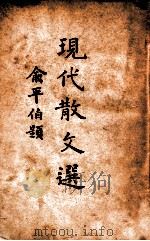 現代散文選
俞平伯題
mtoou.info